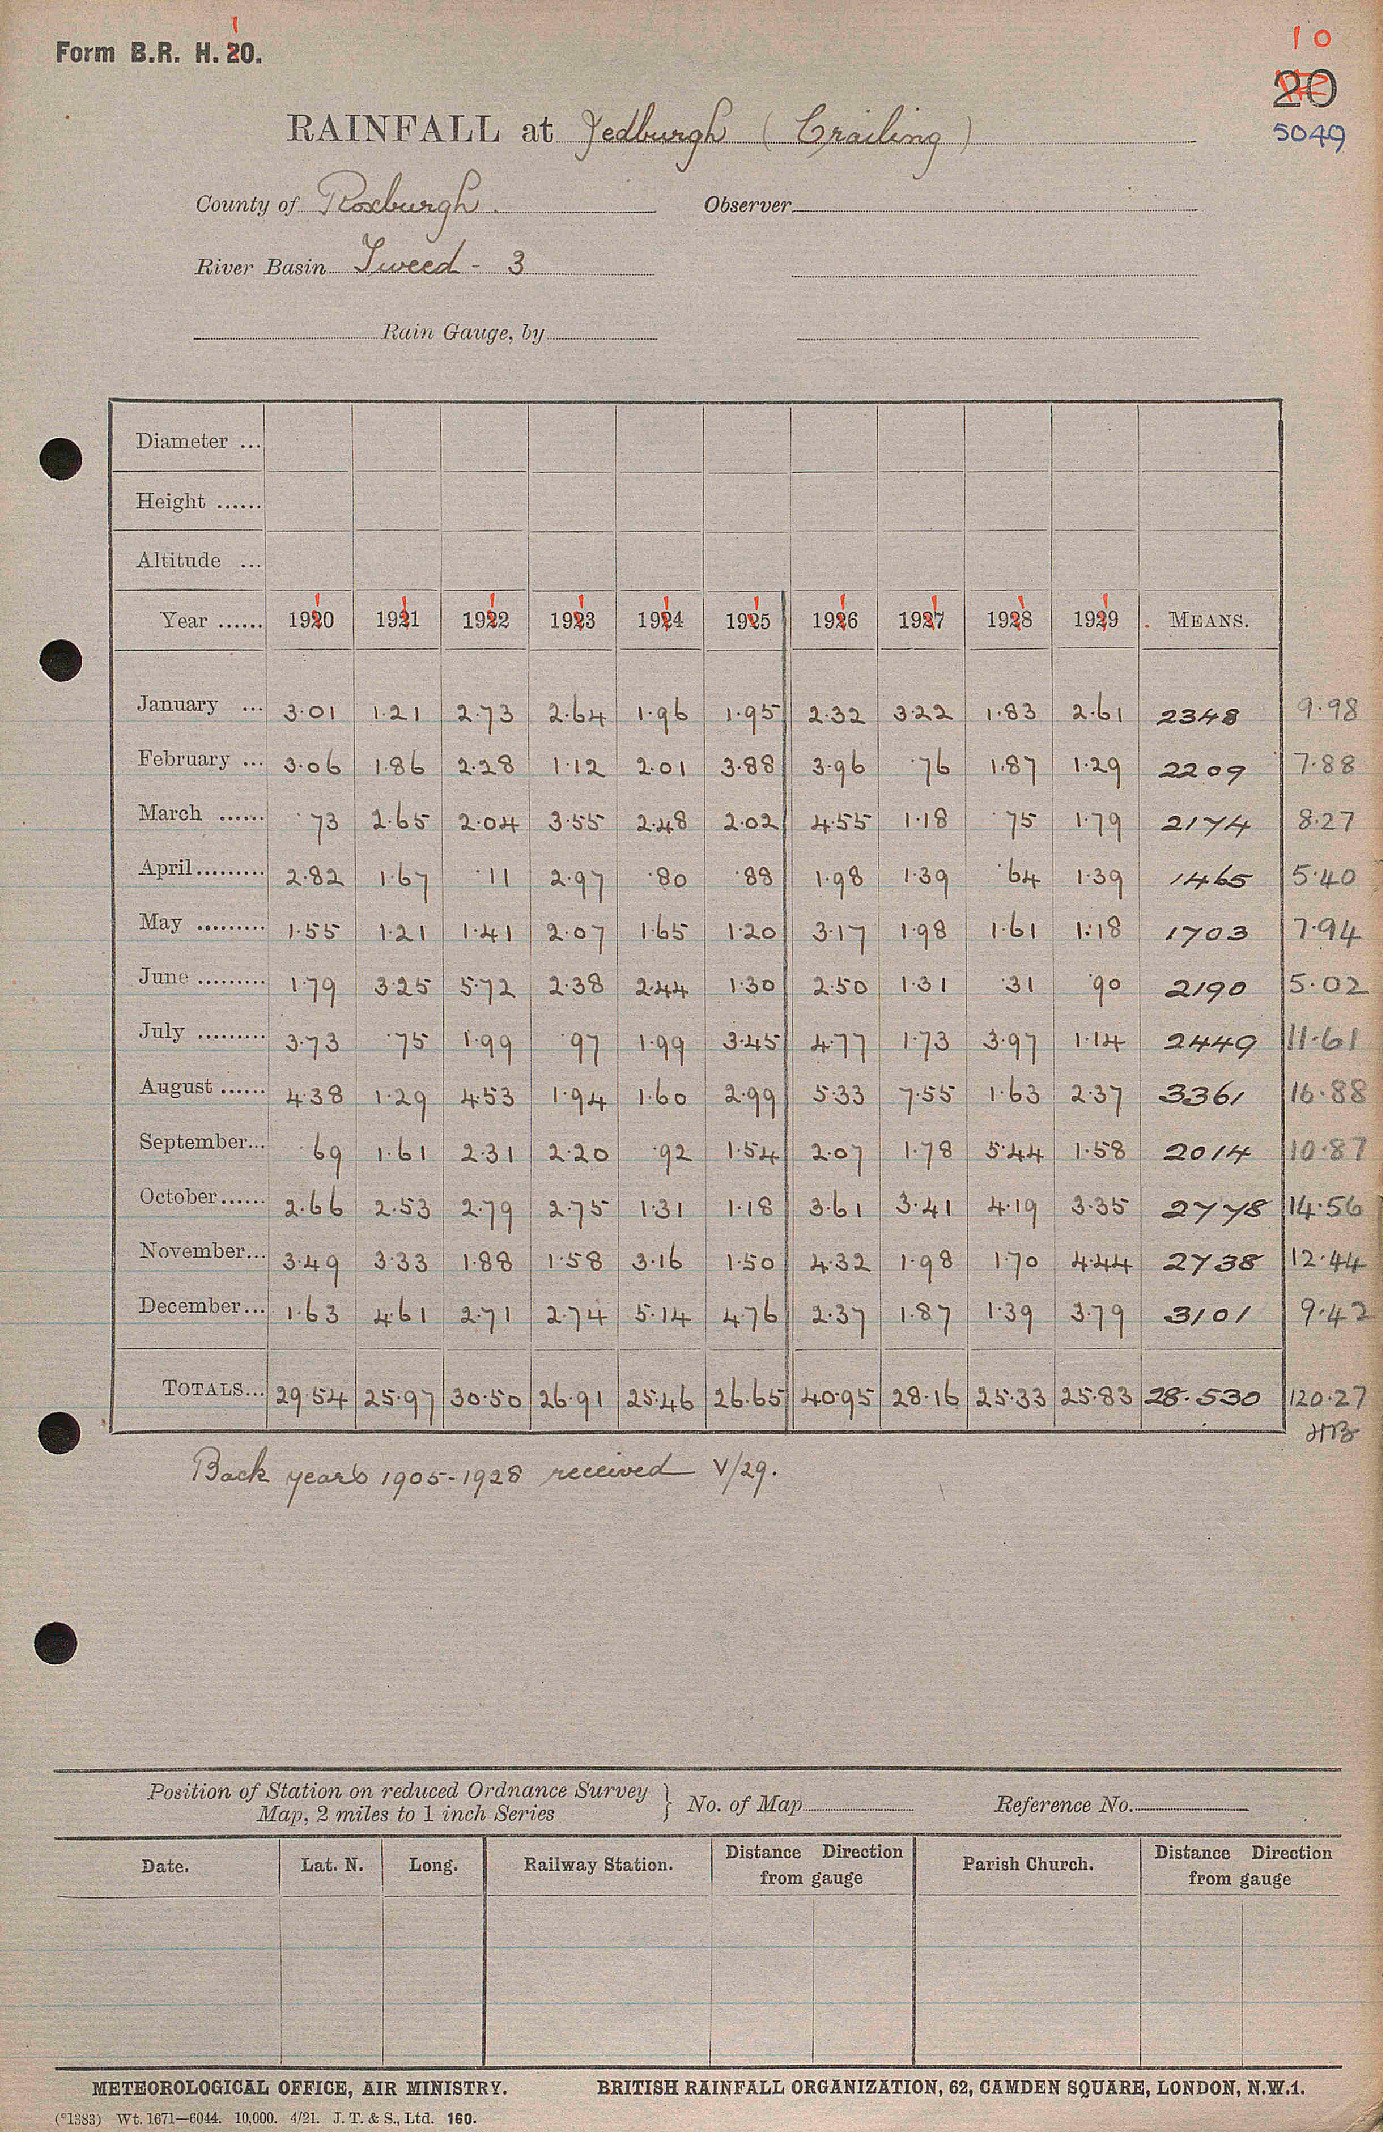 Form B.R. H. 20. 1
10
20
RAINFALL at Jedburgh (Crailing)
5049
County of Roxburgh. Observer
River Basin Tweed - 3
Rain Gauge, by
Diameter ...
Height ......
Altitude ...
Year ...... 1920 1921 1922 1923 1924 1925 1926 1927 1928 1929 MEANS.
1 1 1 1 1 1 1 1 1 1
January ... 3.01 1.21 2.73 2.64 1.96 1.95 2.32 3.22 1.83 2.61 2348 9.98
February ... 3.06 1.86 2.28 1.12 2.01 3.88 3.96 .76 1.87 1.29 2209 7.88
March ...... .73 2.65 2.04 3.55 2.48 2.02 4.55 1.18 .75 1.79 2174 8.27
April ......... 2.82 1.67 .11 2.97 .80 .88 1.98 1.39 .64 1.39 1465 5.40
May ......... 1.55 1.21 1.41 2.07 1.65 1.20 3.17 1.98 1.61 1.18 1703 7.94
June ......... 1.79 3.25 5.72 2.38 2.44 1.30 2.50 1.31 .31 .90 2190 5.02
July ......... 3.73 .75 1.99 .97 1.99 3.45 4.77 1.73 3.97 1.14 2449 11.61
August ...... 4.38 1.29 4.53 1.94 1.60 2.99 5.33 7.55 1.63 2.37 3361 16.88
September... .69 1.61 2.31 2.20 .92 1.54 2.07 1.78 5.44 1.58 2014 10.87
October ...... 2.66 2.53 2.79 2.75 1.31 1.18 3.61 3.41 4.19 3.35 2778 14.56
November... 3.49 3.33 1.88 1.58 3.16 1.50 4.32 1.98 1.70 4.44 2738 12.44
December... 1.63 4.61 2.71 2.74 5.14 4.76 2.37 1.87 1.39 3.79 3101 9.42
TOTALS... 29.54 25.97 30.50 26.91 25.46 26.65 40.95 28.16 25.33 25.83 28.530 120.27
Back years 1905-1928 received V/29.
Position of Station on reduced Ordnance Survey
Map, 2 miles to 1 inch Series } No. of Map Reference No.
Date. Lat. N. Long. Railway Station. Distance Direction from gauge Parish Church. Distance Direction from gauge
METEOROLOGICAL OFFICE, AIR MINISTRY. BRITISH RAINFALL ORGANIZATION, 62, CAMDEN SQUARE, LONDON, N.W.1.
(*1383) Wt. 1671—6044. 10,000. 4/21. J. T. & S., Ltd. 160.